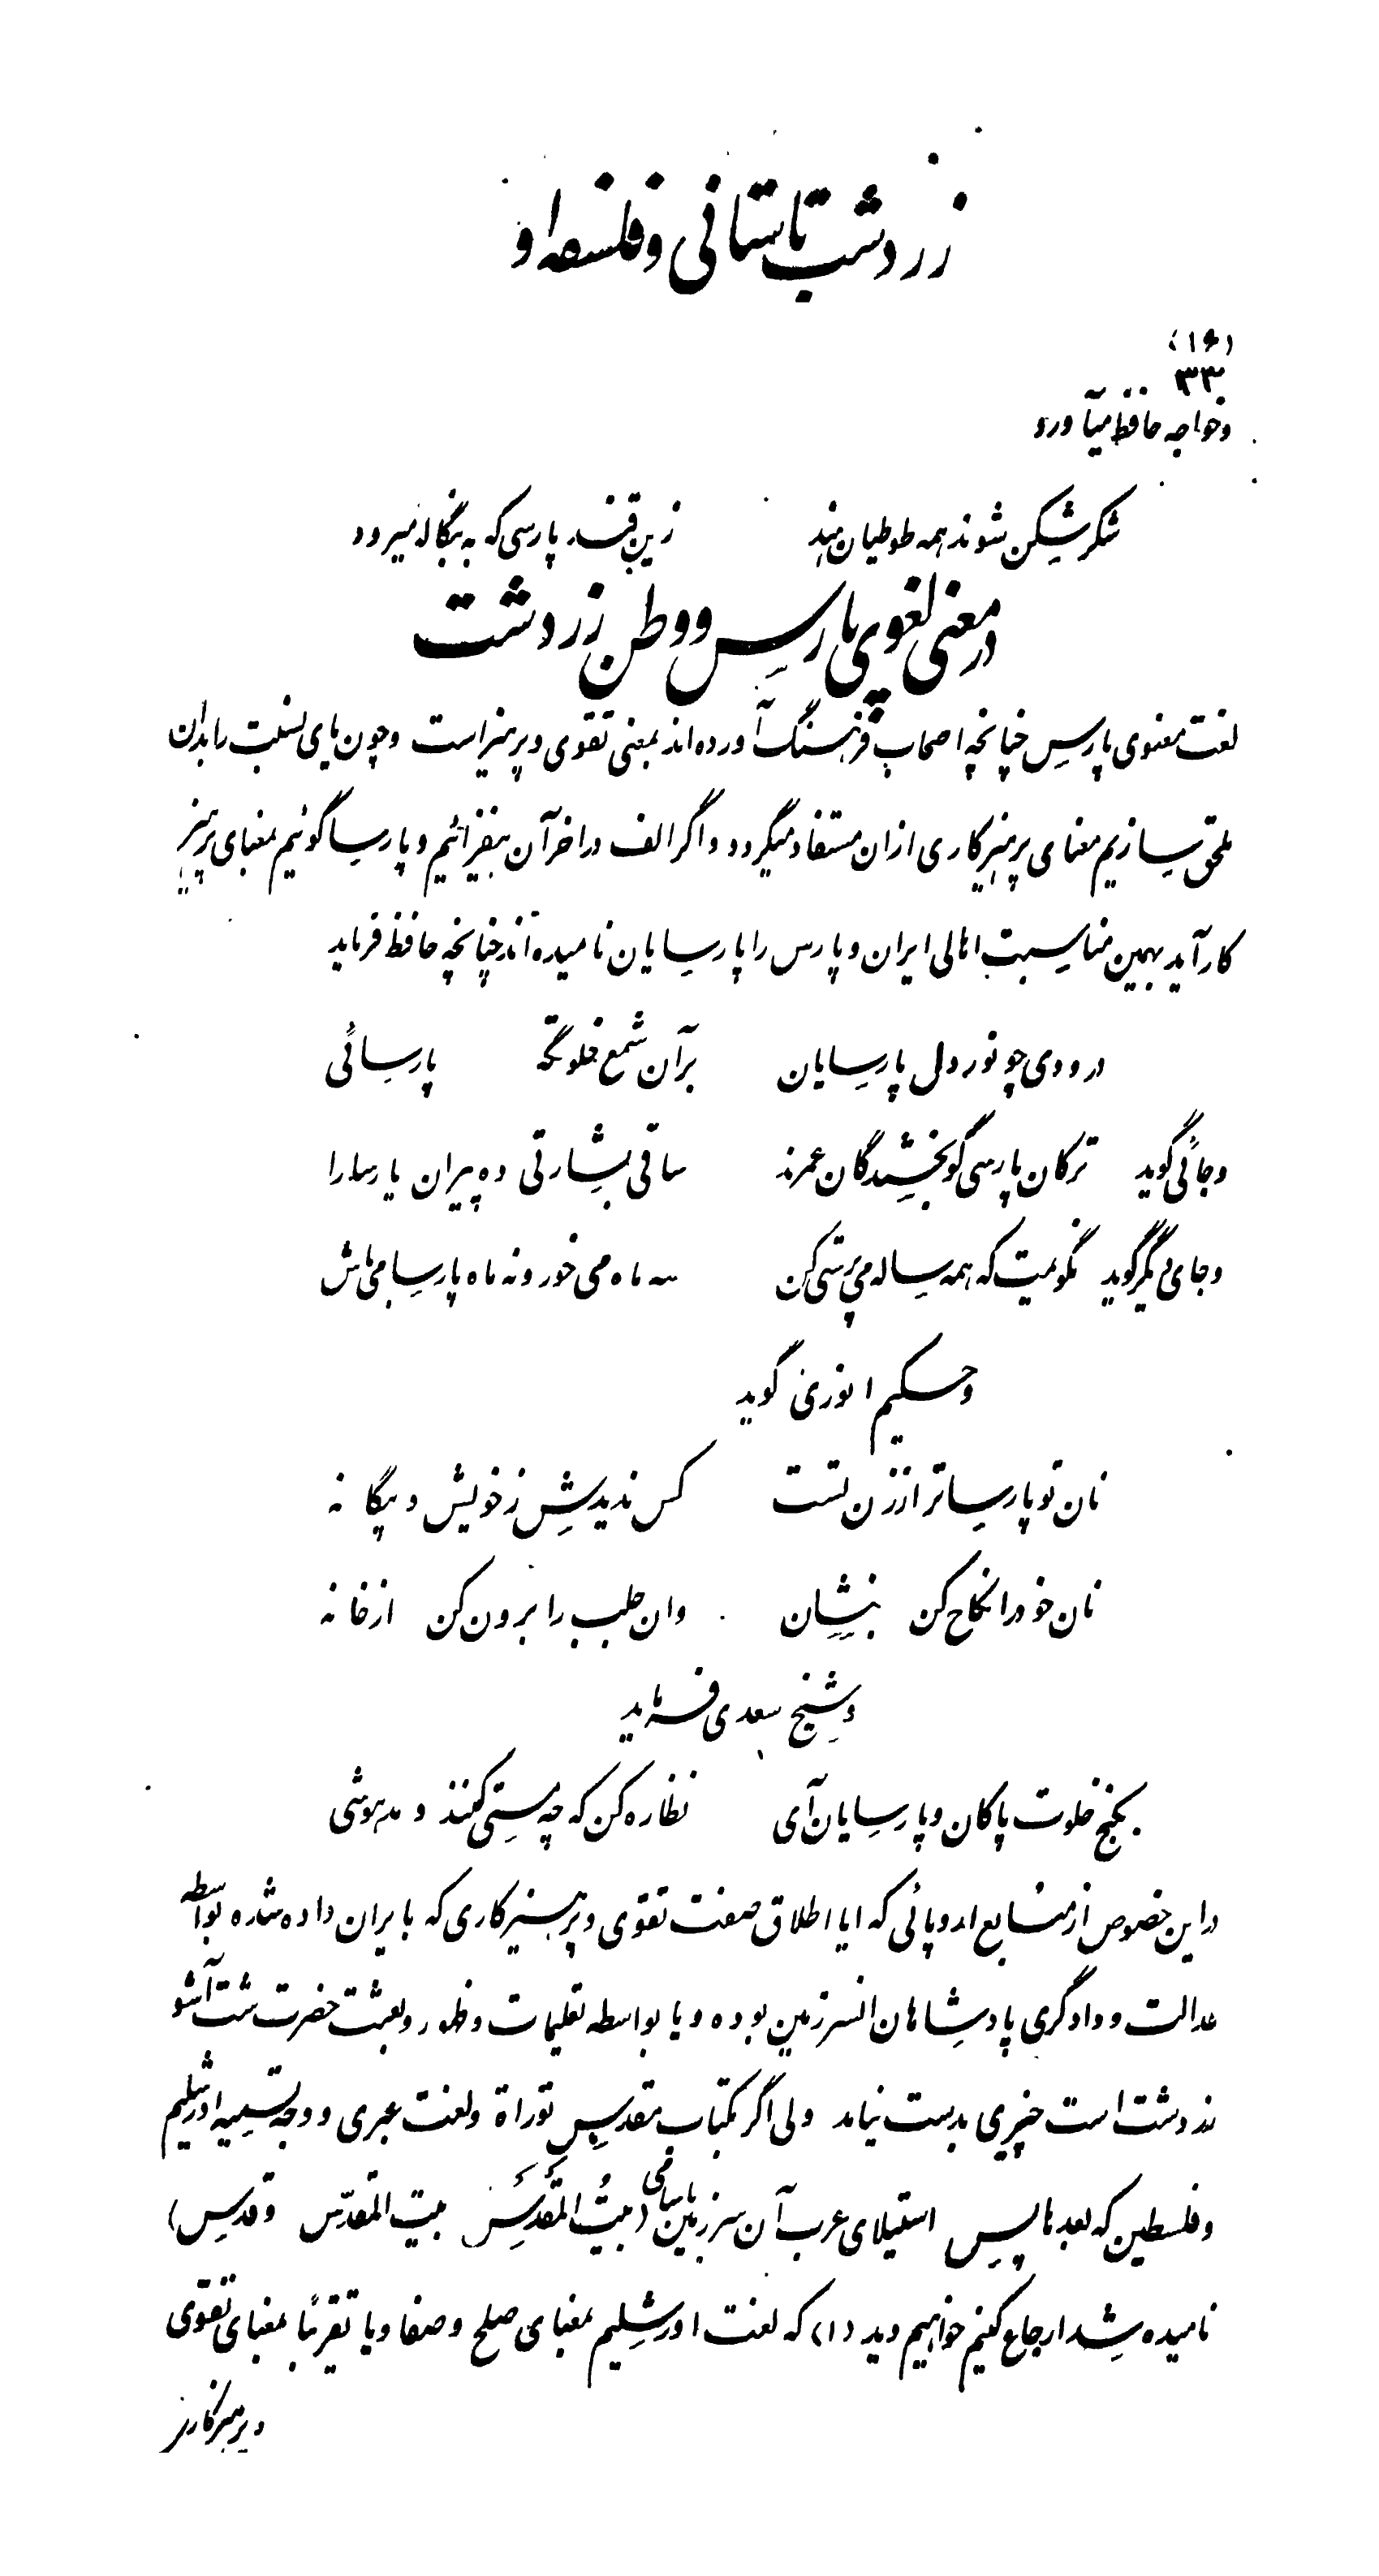 زردشت باستانی و فلسفه او
(۱۶)
۳۳
و خواجه حافظ میآورد
شکر شکن شوند همه طوطیان هند زین قند پارسی که به بنگاله میرود
در معنی لغوی پارس و وطن زردشت
لغت معنوی پارس چنانچه اصحاب فرهنگ آورده اند بمعنی تقوی و پرهیز است و چون یای نسبت را بدان
ملحق سازیم معنای پرهیزکاری ازان مستفاد میگردد و اگر الف در اخر آن بیفزائیم و پارسا گوئیم معنای پرهیز
کار آید بهمین مناسبت اهالی ایران و پارس را پارسایان نامیده اند چنانچه حافظ فرماید
درودی چو نور دل پارسایان بر آن شمع خلوتگه پارسائی
و جائی گوید ترکان پارسی گو بخشندگان عمرند ساقی بشارتی ده پیران پارسا را
و جای دیگر گوید نگویمت که همه ساله می پرستی کن سه ماه می خور و نه ماه پارسا می باش
و حکیم انوری گوید
نان تو پارساتر از زن تست کس ندیدش ز خویش و بیگانه
نان خود را نکاح کن بنشان وان جلب را برون کن از خانه
و شیخ سعدی فرماید
بکنج خلوت پاکان و پارسایان آی نظاره کن که چه مستی کنند و مدهوشی
در این خصوص از منابع اروپائی که ایا اطلاق صفت تقوی و پرهیزکاری که بایران داده شده بواسطه
عدالت و دادگری پادشاهان انسرزمین بوده و یا بواسطه تعلیمات و ظهور و بعثت حضرت شت آشو
زردشت است چیزی بدست نیامد ولی اگر بکتاب مقدس توراة و لغت عبری و وجه تسمیه اورشلیم
و فلسطین که بعدها پس استیلای عرب آن سرزمین باسامی (بیتُ المُقَدَّس بیت المقدّس و قدس)
نامیده شد ارجاع کنیم خواهیم دید (۱) که لغت اورشلیم بمعنای صلح و صفا و یا تقریباً بمعنای تقوّی
و پرهیزکار